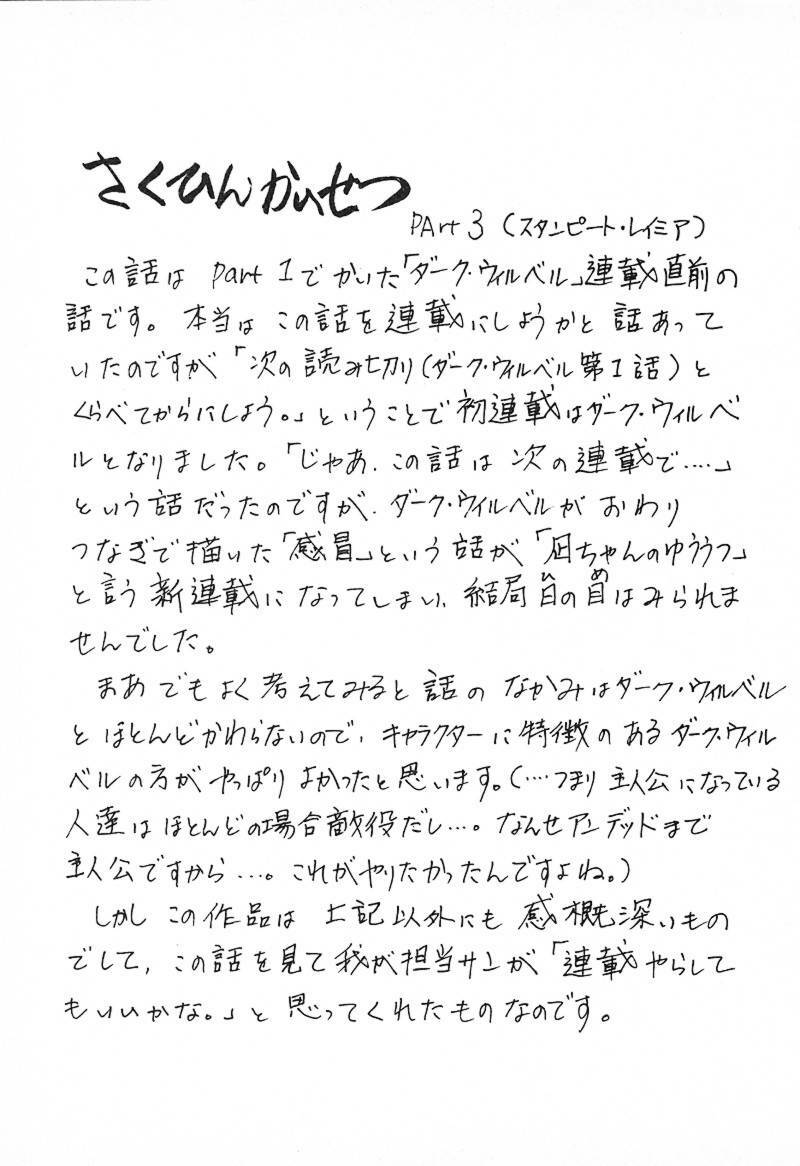 さくひんかいせつ
PArt 3 (スタンピート・レイミア)
この話は part 1でかいた「ダーク・ウィルベル」連載直前の
話です。本当はこの話を連載にしようかと話あって
いたのですが「次の読み切り(ダーク・ウィルベル第1話)と
くらべてからにしよう。」ということで初連載はダーク・ウィルベ
ルとなりました。「じゃあ、この話は次の連載で‥‥」
という話だったのですが、ダーク・ウィルベルがおわり
つなぎで描いた「感冒」という話が「凪ちゃんのゆううつ」
と言う新連載になってしまい、結局日の目はみられま
せんでした。
まあでもよく考えてみると話のなかみはダーク・ウィルベル
とほとんどかわらないので、キャラクターに特徴のあるダーク・ウィル
ベルの方がやっぱりよかったと思います。(‥‥つまり主人公になっている
人達はほとんどの場合敵役だし‥‥。なんせアンデッドまで
主人公ですから‥‥。これがやりたかったんですよね。)
しかしこの作品は上記以外にも感慨深いもの
でして、この話を見て我が担当サンが「連載やらして
もいいかな。」と思ってくれたものなのです。